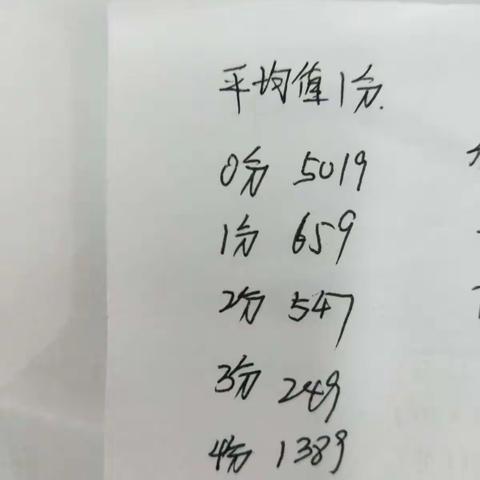 平均值1分.
0分 5019
1分 659
2分 547
3分 249
4分 1389